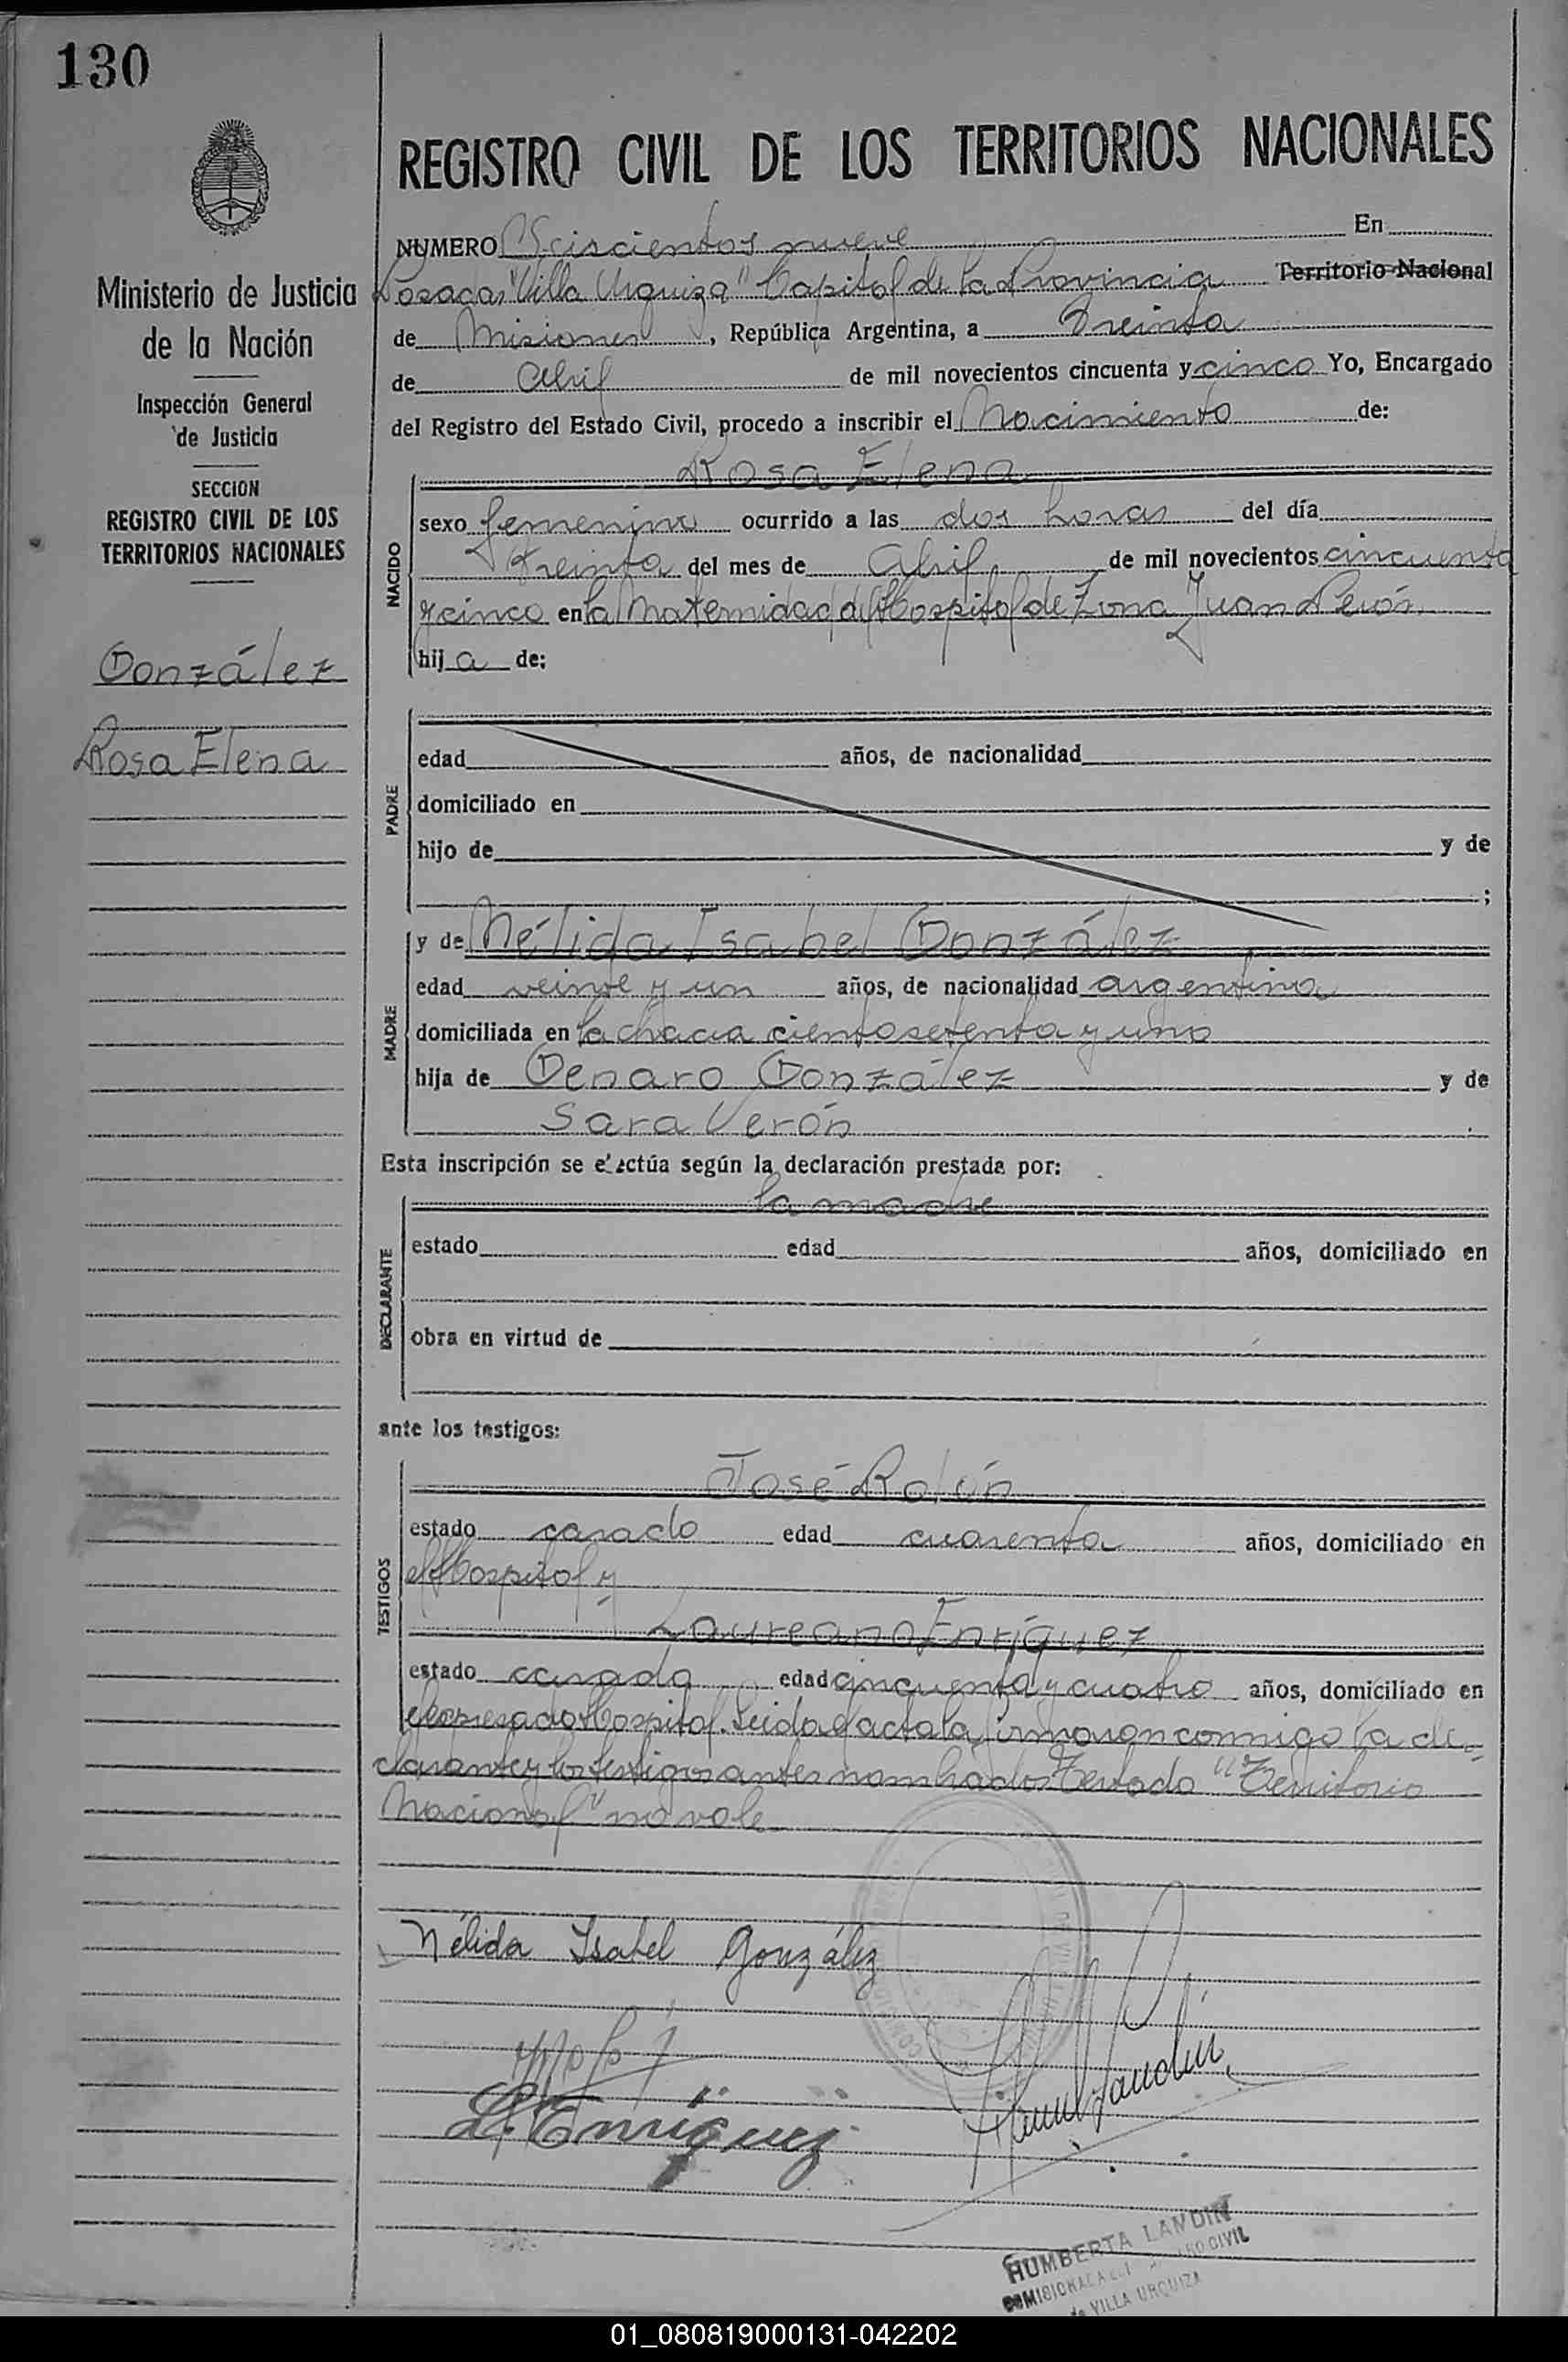 130
REGISTRO CIVIL DE LOS TERRITORIOS NACIONALES
Ministerio de Justicia
de la Nación
Inspección General
de Justicia
SECCION
REGISTRO CIVIL DE LOS
TERRITORIOS NACIONALES
González
Rosa Elena
NUMERO Seiscientos nueve En
Posadas "Villa Urquiza" Capital de la Provincia Territorio Nacional
de Misiones, República Argentina, a Treinta
de Abril de mil novecientos cincuenta y cinco Yo, Encargado
del Registro del Estado Civil, procedo a inscribir el Nacimiento de:
NACIDO
Rosa Elena
sexo femenino ocurrido a las dos horas del día
treinta del mes de Abril de mil novecientos cincuenta
y cinco en la Maternidad del Hospital de Zona Juan Perón
hija de:
PADRE
edad años, de nacionalidad
domiciliado en
hijo de y de
;
MADRE
y de Nélida Isabel González
edad veinte y un años, de nacionalidad argentina
domiciliada en la chacra ciento setenta y uno
hija de Genaro González y de
Sara Verón
Esta inscripción se efectúa según la declaración prestada por:
DECLARANTE
la madre
estado edad años, domiciliado en
obra en virtud de
ante los testigos:
TESTIGOS
José Rolón
estado casado edad cuarenta años, domiciliado en
el Hospital y
Laureano Enríquez
estado casado edad cincuenta y cuatro años, domiciliado en
el expresado Hospital. Leida el acta la firmaron conmigo la de-
clarante y los testigos antes nombrados Testado "Territorio
Nacional" no vale
Nélida Isabel González
L. Enríquez
HUMBERTA LANDIN
CIVIL
de VILLA URQUIZA
01_080819000131-042202